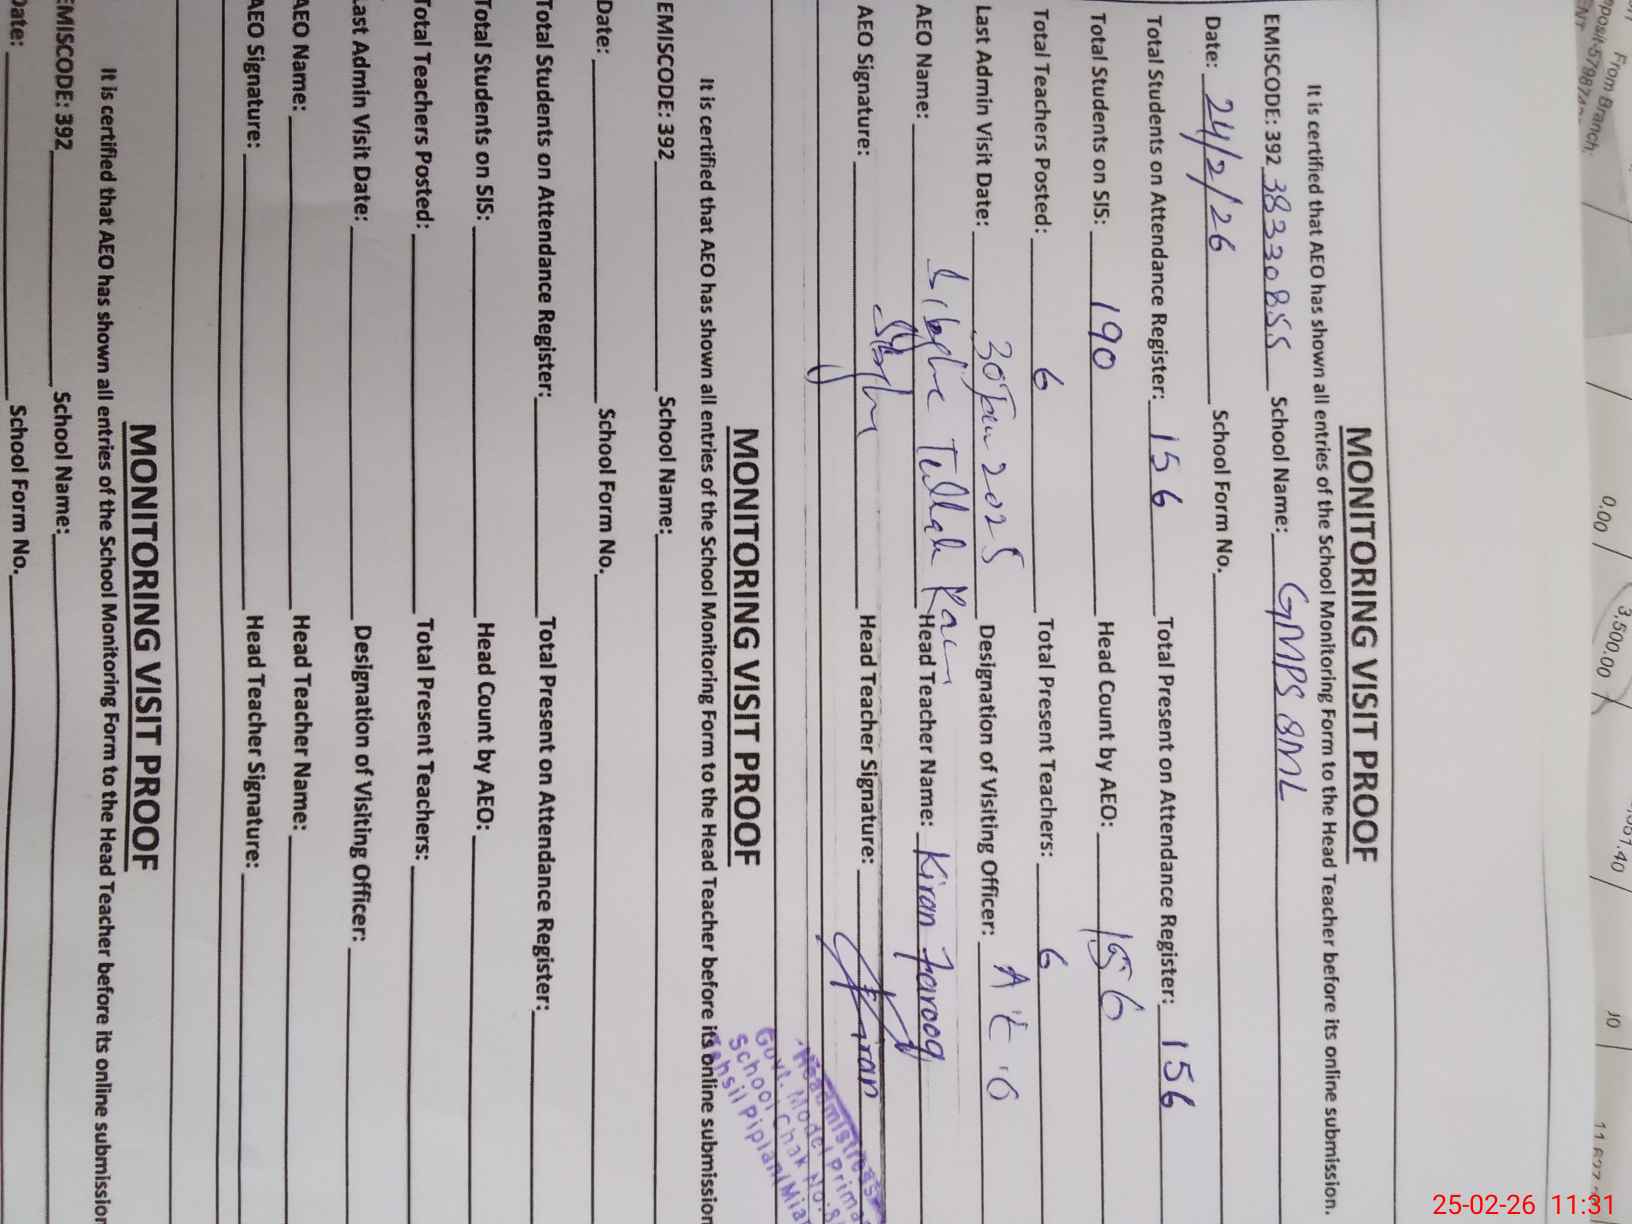 From Branch:
0.00
3,500.00
MONITORING VISIT PROOF
It is certified that AEO has shown all entries of the School Monitoring Form to the Head Teacher before its online submission.
EMISCODE: 392 38330855 School Name: GMPS 8ML
Date: 24/2/26 School Form No.
Total Students on Attendance Register: 156 Total Present on Attendance Register: 156
Total Students on SIS: 190 Head Count by AEO: 156
Total Teachers Posted: 6 Total Present Teachers: 6
Last Admin Visit Date: 30 Jan 2025 Designation of Visiting Officer: AEO
AEO Name: Head Teacher Name: Kiran Farooq
AEO Signature: Head Teacher Signature: Kiran
Headmistress
Govt. Model Prima
School Chak No.8/
Tehsil Piplan/Mia
MONITORING VISIT PROOF
It is certified that AEO has shown all entries of the School Monitoring Form to the Head Teacher before its online submission
EMISCODE: 392 School Name:
Date: School Form No.
Total Students on Attendance Register: Total Present on Attendance Register:
Total Students on SIS: Head Count by AEO:
Total Teachers Posted: Total Present Teachers:
Last Admin Visit Date: Designation of Visiting Officer:
AEO Name: Head Teacher Name:
AEO Signature: Head Teacher Signature:
MONITORING VISIT PROOF
It is certified that AEO has shown all entries of the School Monitoring Form to the Head Teacher before its online submission
EMISCODE: 392 School Name:
Date: School Form No.
25-02-26 11:31